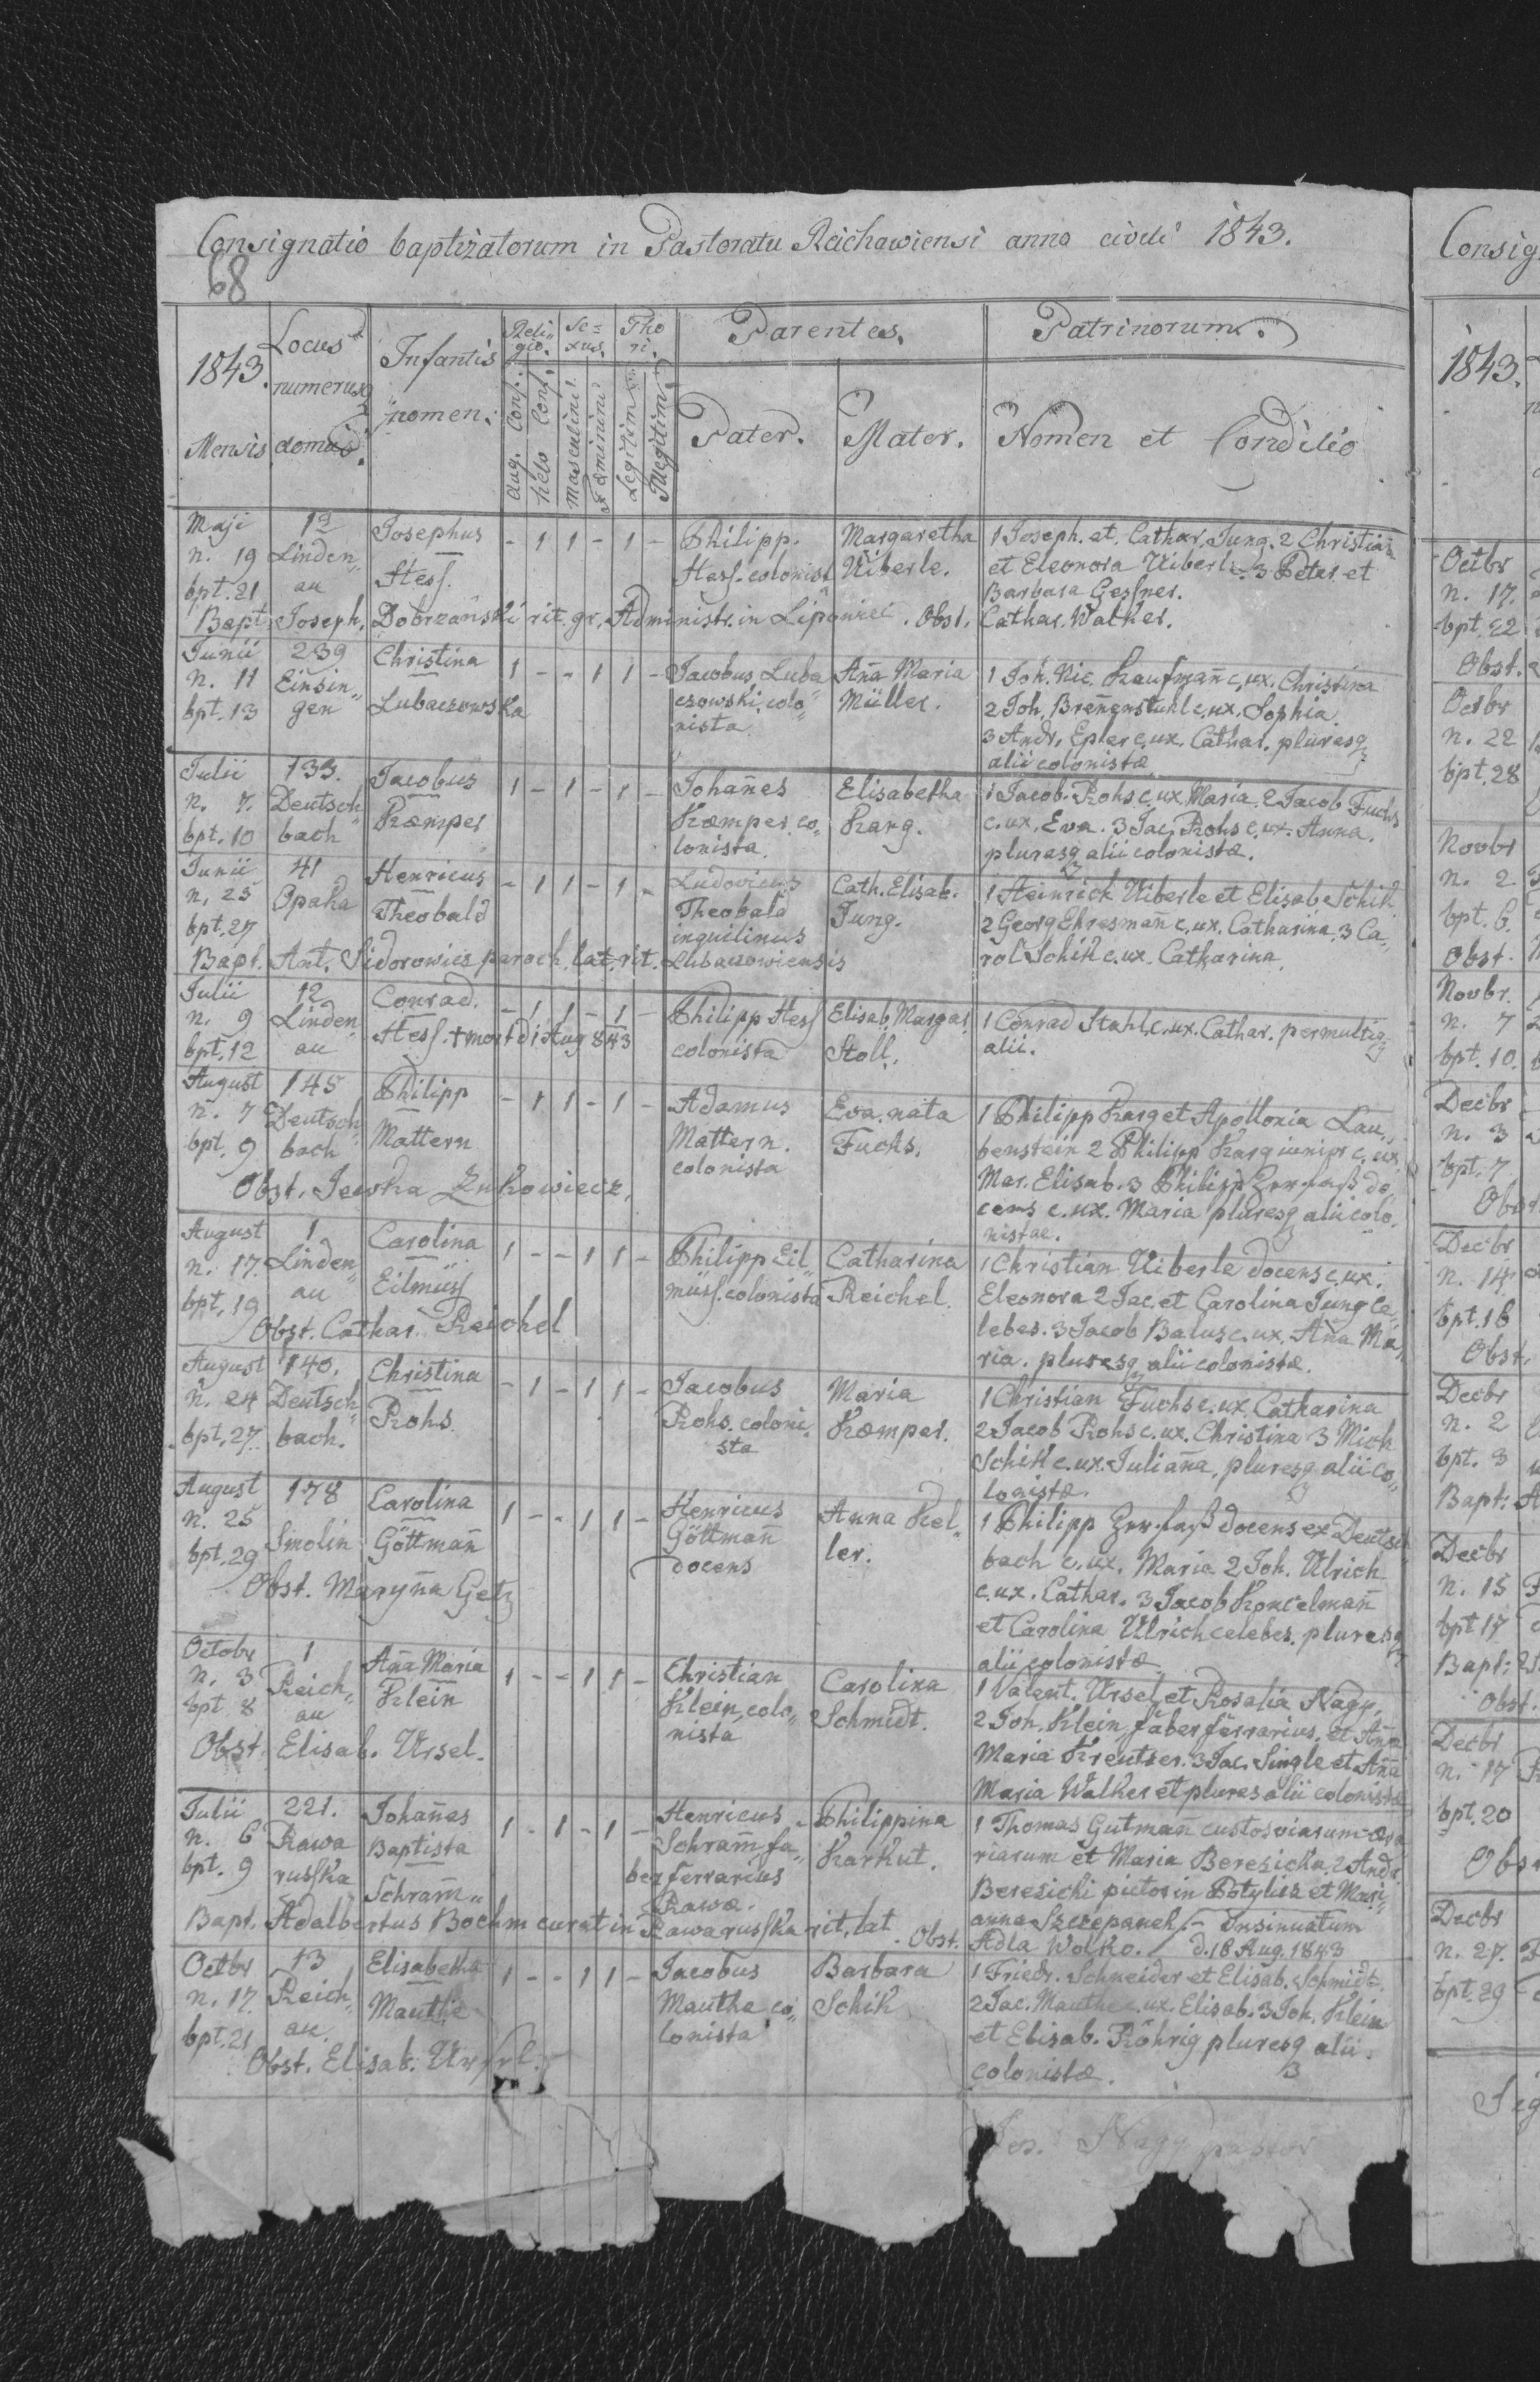 Consignatio baptizatorum in Pastoratu Reichawiensi anno civili 1843.
68
1843. Mensis
Locus numerusq domus.
Infantis nomen.
Religio. Aug. Conf. Helv. Conf.
Sexus. Masculini Fœminini
Thori. Legitim. Illegitim.
Parentes. Pater. Mater.
Patrinorum. Nomen et Conditio
Maji 12 Josephus - 1 1 - 1 - Philipp. Margaretha 1 Joseph. et Cathar. Jung. 2 Christian
n. 19 Linden„ Hess. Hess. colonist Uiberle. et Eleonora Uiberle 3 Peter et
bpt. 21 au Barbara Gessner.
Bapt. Joseph. Dobrzański rit. gr. Administr. in Lipowiec. Obst. Cathar. Walker.
Junii 239 Christina 1 - - 1 1 - Jacobus Luba Ana Maria 1 Joh. Nic. Kaufmañ c. ux. Christina
n. 11 Einsin„ Lubaczowska czowski, colo„ Müller. 2 Joh. Breñenstuhl c. ux. Sophia.
bpt. 13 gen nista 3 Andr. Epler c. ux. Cathar. pluresq
alii colonistæ
Julii 133. Jacobus 1 - 1 - 1 - Johañes Elisabetha 1 Jacob. Rohs c. ux. Maria. 2 Jacob Fuchs
n. 7. Deutsch„ Kæmper Kæmper co„ Karg. c. ux. Eva. 3 Jac. Rohs c. ux. Anna.
bpt. 10 bach lonista. pluresq alii colonistæ.
Junii 41 Henricus - 1 1 - 1 - Ludovicus Cath. Elisab. 1 Heinrich Uiberle et Elisab Schik
n. 25 Opaka Theobald Theobald Jung. 2 Georg Ehresmañ c. ux. Catharina. 3 Ca„
bpt. 27 inquilinus rol Schik c. ux. Catharina.
Bapt. Ant. Sidorowicz paroch. lat. rit. Lubaczowiensis
Julii 12 Conrad. - 1 1 - 1 - Philipp Hess Elisab. Margar. 1 Conrad Stahl c. ux. Cathar. permultiq
n. 9 Linden„ Hess. + mort d 1 Aug 843 colonista Stoll. alii.
bpt. 12 au
August 145 Philipp - 1 1 - 1 - Adamus Eva. nata 1 Philipp Karg et Apollonia Lau„
n. 7 Deutsch„ Mattern Mattern. Fuchs. benstein 2 Philipp Karg junior c. ux
bpt. 9 bach colonista Mar. Elisab. 3 Philipp Zerfaß do
Obst. Jewska Zukowiecz. cens c. ux. Maria pluresq alii colo.
nistae.
August 1 Carolina 1 - - 1 1 - Philipp Eil„ Catharina 1 Christian Uiberle docens c. ux.
n. 17. Linden„ Eilmüss müss. colonista Reichel. Eleonora 2 Jac. et Carolina Jung ce„
bpt. 19 au lebes. 3 Jacob Balus c. ux. Aña Ma„
Obst. Cathar. Reichel ria. pluresq alii colonistæ.
August 140. Christina - 1 - 1 1 - Jacobus Maria 1 Christian Fuchs c. ux. Catharina
n. 24 Deutsch„ Rohs Rohs. coloni„ Kæmper. 2 Jacob Rohs c. ux. Christina 3 Mich
bpt. 27 bach. sta Schik c. ux. Juliaña, pluresq alii co„
lonistæ.
August 178 Carolina 1 - - 1 1 - Henricus Anna Kel„ 1 Philipp Zerfaß docens ex Deutsch
n. 25 Smolin Göttmañ Göttmañ ler. bach c. ux. Maria 2 Joh. Ulrich
bpt. 29 docens c. ux. Cathar. 3 Jacob Koncelmañ
Obst. Maryña Getz et Carolina Ulrich celebes. pluresq
alii colonistæ
Octobr 1 Aña Maria 1 - - 1 1 - Christian Carolina 1 Valent. Ursel et Rosalia Nagy.
n. 3 Reich„ Klein Klein, colo„ Schmidt. 2 Joh. Klein faber ferrarius et Aña
bpt 8 au nista Maria Kreutzer. 3 Jac. Single et Aña
Obst. Elisab. Ursel. Maria Walker et plures alii colonistæ
Julii 221. Johañes 1 - 1 - 1 - Henricus Philippina 1 Thomas Gutmañ custos viarum æra
n. 6 Rawa Baptista Schram̄ fa„ Karkut. riarum et Maria Beresicka. 2 Andr
bpt. 9 russka Schram̄„ ber ferrarius Beresicki pictor in Potylicz et Mari„
Rawæ. anna Szczepanek. - Insinuatum
Bapt. Adalbertus Boehm curat in Rawarusska rit. lat. Obst. Adla Wolko. d. 18 Aug. 1843
Octbr 13 Elisabetha 1 - - 1 1 - Jacobus Barbara 1 Friedr. Schneider et Elisab. Schmidt.
n. 17. Reich„ Mauthe Mauthe co„ Schik 2 Jac. Mauthe c. ux. Elisab. 3 Joh. Klein
bpt. 21 au. lonista et Elisab. Röhrig pluresq alii
Obst. Elisab. Ursel. colonistæ.
Nagy pastor
Consig
1843.
Octbr
n. 17.
bpt. 22
Obst.
Octbr
n. 22
bpt. 28
Novbr
n. 2
bpt. 6.
Obst.
Novbr.
n. 7
bpt. 10.
Decbr
n. 3
bpt. 7
Obst
Decbr
n. 14
bpt. 18
Obst.
Decbr
n. 2
bpt. 3
Bapt:
Decbr
n. 15
bpt 17
Bapt:
Obst.
Decbr
n. 17
bpt. 20
Obst
Decbr
n. 27.
bpt. 29
Sig